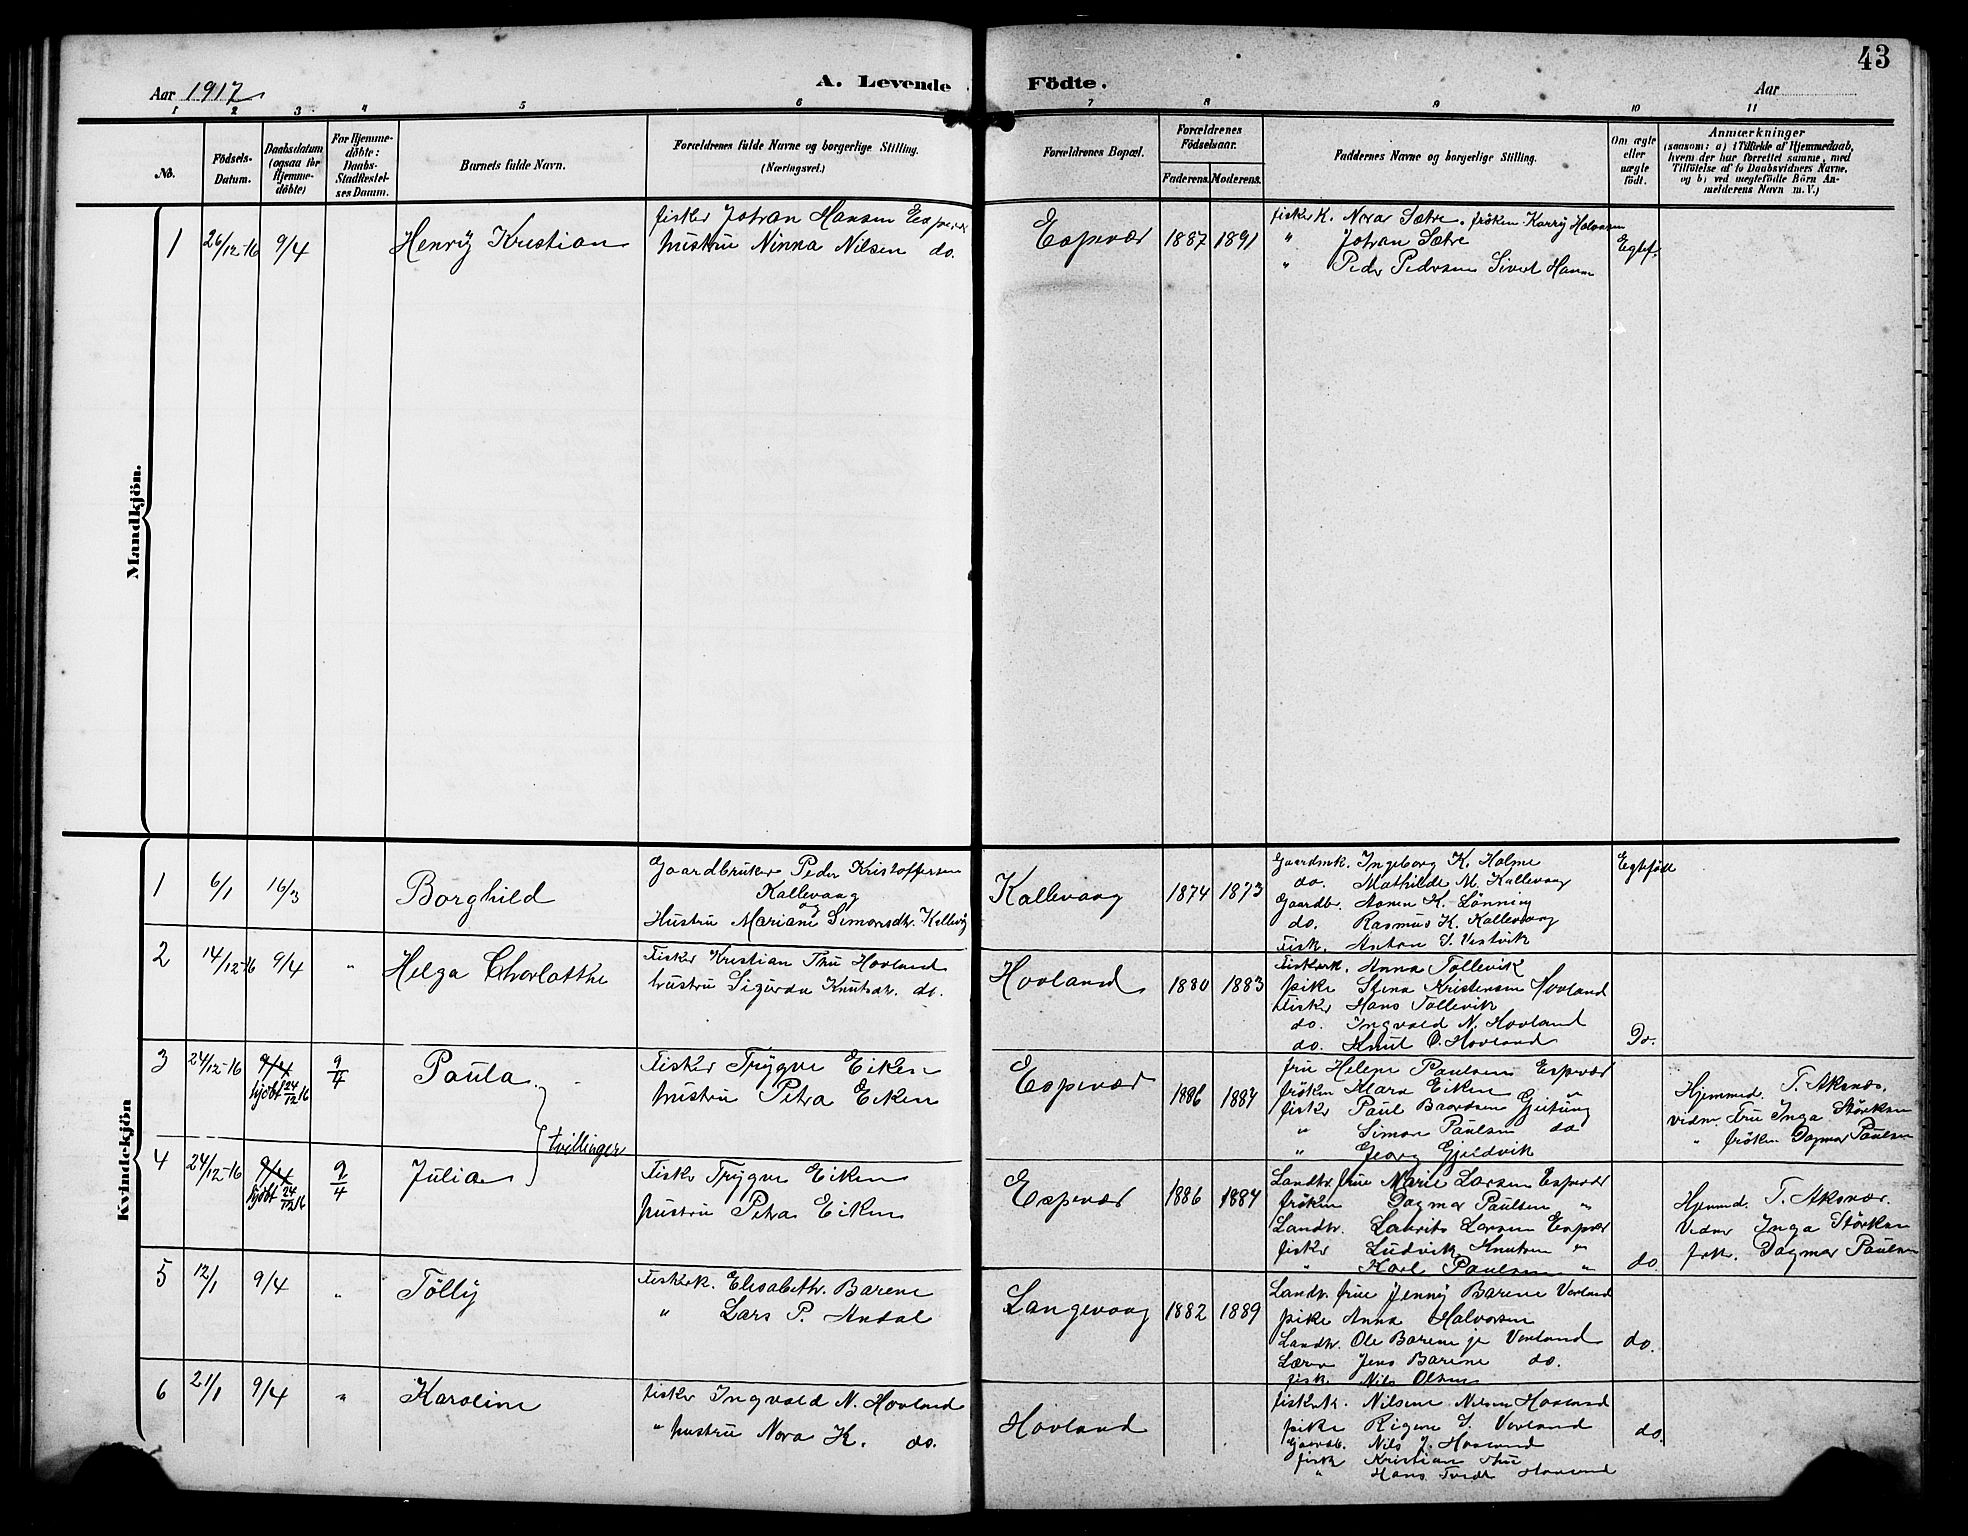 43
Aar 1917
A. Levende Födte.
Aar
1 2 3 4 5 6 7 8 9 10 11
No.
Födsels-Datum.
Daabsdatum (ogsaa for Hjemme-döbte)
For Hjemme-döbte: Daabs-Stadfæstel-ses Datum.
Barnets fulde Navn.
Forældrenes fulde Navne og borgerlige Stilling.
(Næringsvei.)
Forældrenes Bopæl.
Forældrenes Födselsaar.
Faderens. Moderens.
Faddernes Navne og borgerlige Stilling.
Om ægte eller uægte födt.
Anmærkninger
(saasom: a) i Tilfælde af Hjemmedaab,
hvem der har forrettet samme, med
Tilföielse af to Daabsvidners Navne,
og b) ved uægtefödte Börn An-
melderens Navn m. V.)
Mandkjön.
1 26/12-16 9/4 Henrÿ Kristian
fisker Johan Hansen Espevær
hustru Ninna Nilsen do.
Espevær 1887 1891
fisker k. Nora Sætre, frøken Karrÿ Halvorsen
" Johan Sætre
" Peder Pedersen Sivert Hansen
Egtef.
Kvindekjön
1 6/1 16/3 Borghild
Gaardbruker Peder Kristoffersen
Kallevaag
og
Hustru Mariane Simonsdtr. Kallevåg
Kallevaag 1874 1873
Gaardmk. Ingeborg K. Holme
do. Mathilde M. Kallevaag
Gaardb. Aamen K. Lønning
do. Rasmus K. Kallevaag
Fisk. Anton S. Vestvik
Egtefödt
2 14/12-16 9/4 " Helga Chorlotthe
Fisker Kristian Thu Hovland
hustru Sigurda Knutsdr. do.
Hovland 1880 1883
Fiskerk. Anna Tollevik
pike Stena Kristensen Hovland
Fisker Hans Tollevik
do. Ingvald N. Hovland
do. Knut O. Hovland
Do.
3 24/12-16 9/4 hjdbt 24/12 16 9/4 Paula
Fisker Trÿgve Eiken
hustru Petra Eiken
Espevær 1886 1884
fru Helene Paulsen Espevær
frøken Klara Eiken "
fisker Paul Baardsen Gjeitung
" Simon Paulsen do
" Georg Gjeldvik
Hjemmed. T. Aksnæs.
vidner Fru Inga Størksen
" frøken Dagmar Paulsen
tvillinger
4 24/12-16 9/4 hjdbt 24/12 16 9/4 Julia
Fisker Trÿgve Eiken
hustru Petra Eiken
Espevær 1886 1884
Landh. frue Marie Larsen Espevær
frøken Dagmar Paulsen "
Landh. Laurits Larsen Espevær
fisker Ludvik Knutsen "
" Karl Paulsen "
do.
Hjemmed. T. Aksnæs.
Vidner Inga Størksen
frk. Dagmar Paulsen
5 12/1 9/4 " Tøllÿ
Fiskerk. Elisabethr. Barene
" Lars P. Andal
Langevaag 1882 1889
Landh. frue Jennÿ Barene Vorland
pike Anna Halvorsen
Landh. Ole Barene je Vorland
Lærer Jens Barene do.
fisk. Nils Olsen
do.
6 21/1 9/4 " Karoline
fisker Ingvald N. Hovland
" hustru Nora K. do.
Hovland
fiskerk. Nilsine Nilsen Hovland
pike Rigine S. Vorland
Gaardb. Nils J. Hovland
fisk Kristian Thu
" Hans Tveit Hovland
do.